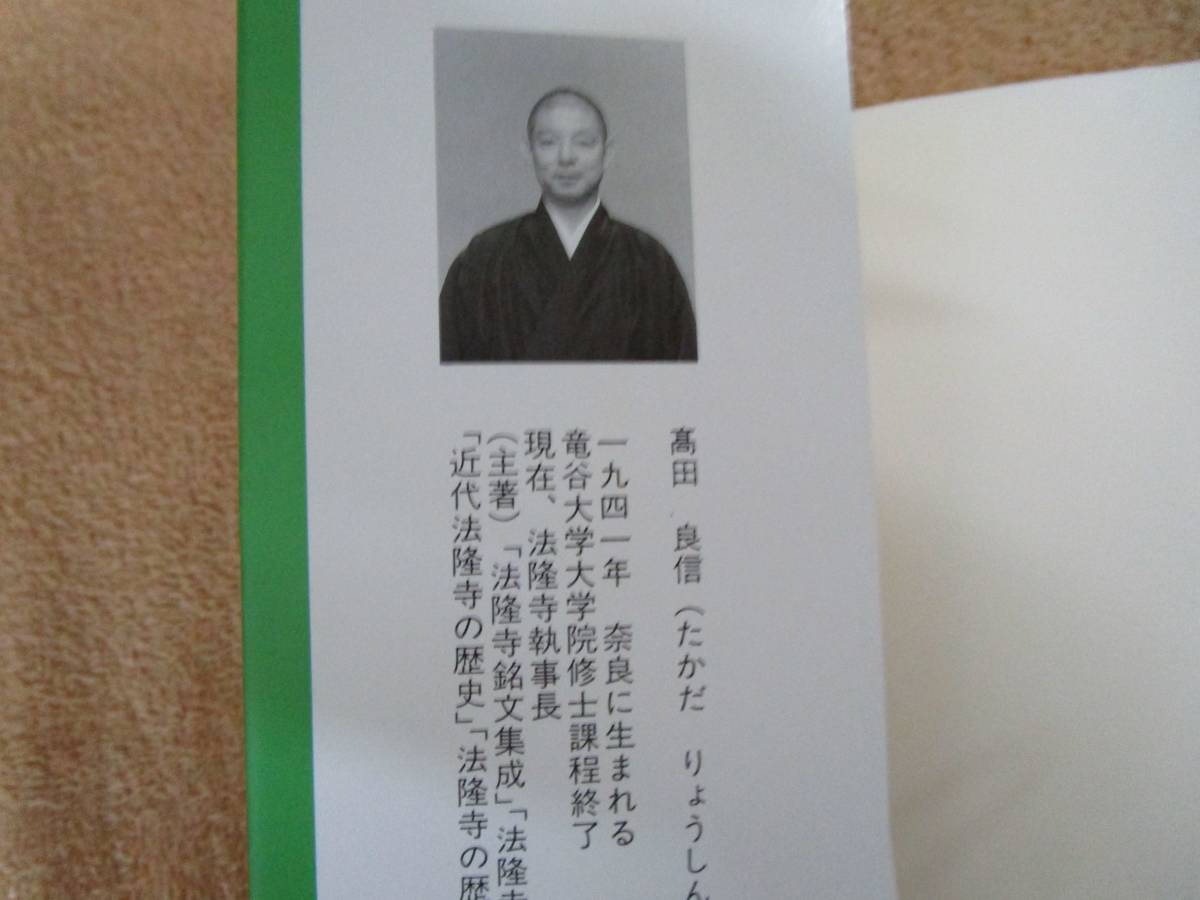 髙田 良信（たかだ りょうしん
一九四一年 奈良に生まれる
竜谷大学大学院修士課程終了
現在、法隆寺執事長
（主著）「法隆寺銘文集成」「法隆寺
「近代法隆寺の歴史」「法隆寺の歴